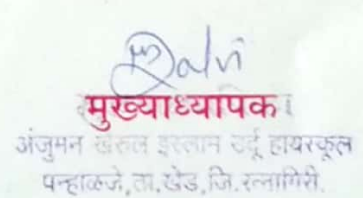 Dalvi
मुख्याध्यापक
अंजुमन खैरुल इस्लाम उर्दू हायस्कूल
पन्हाळजे, ता. खेड, जि. रत्नागिरी.